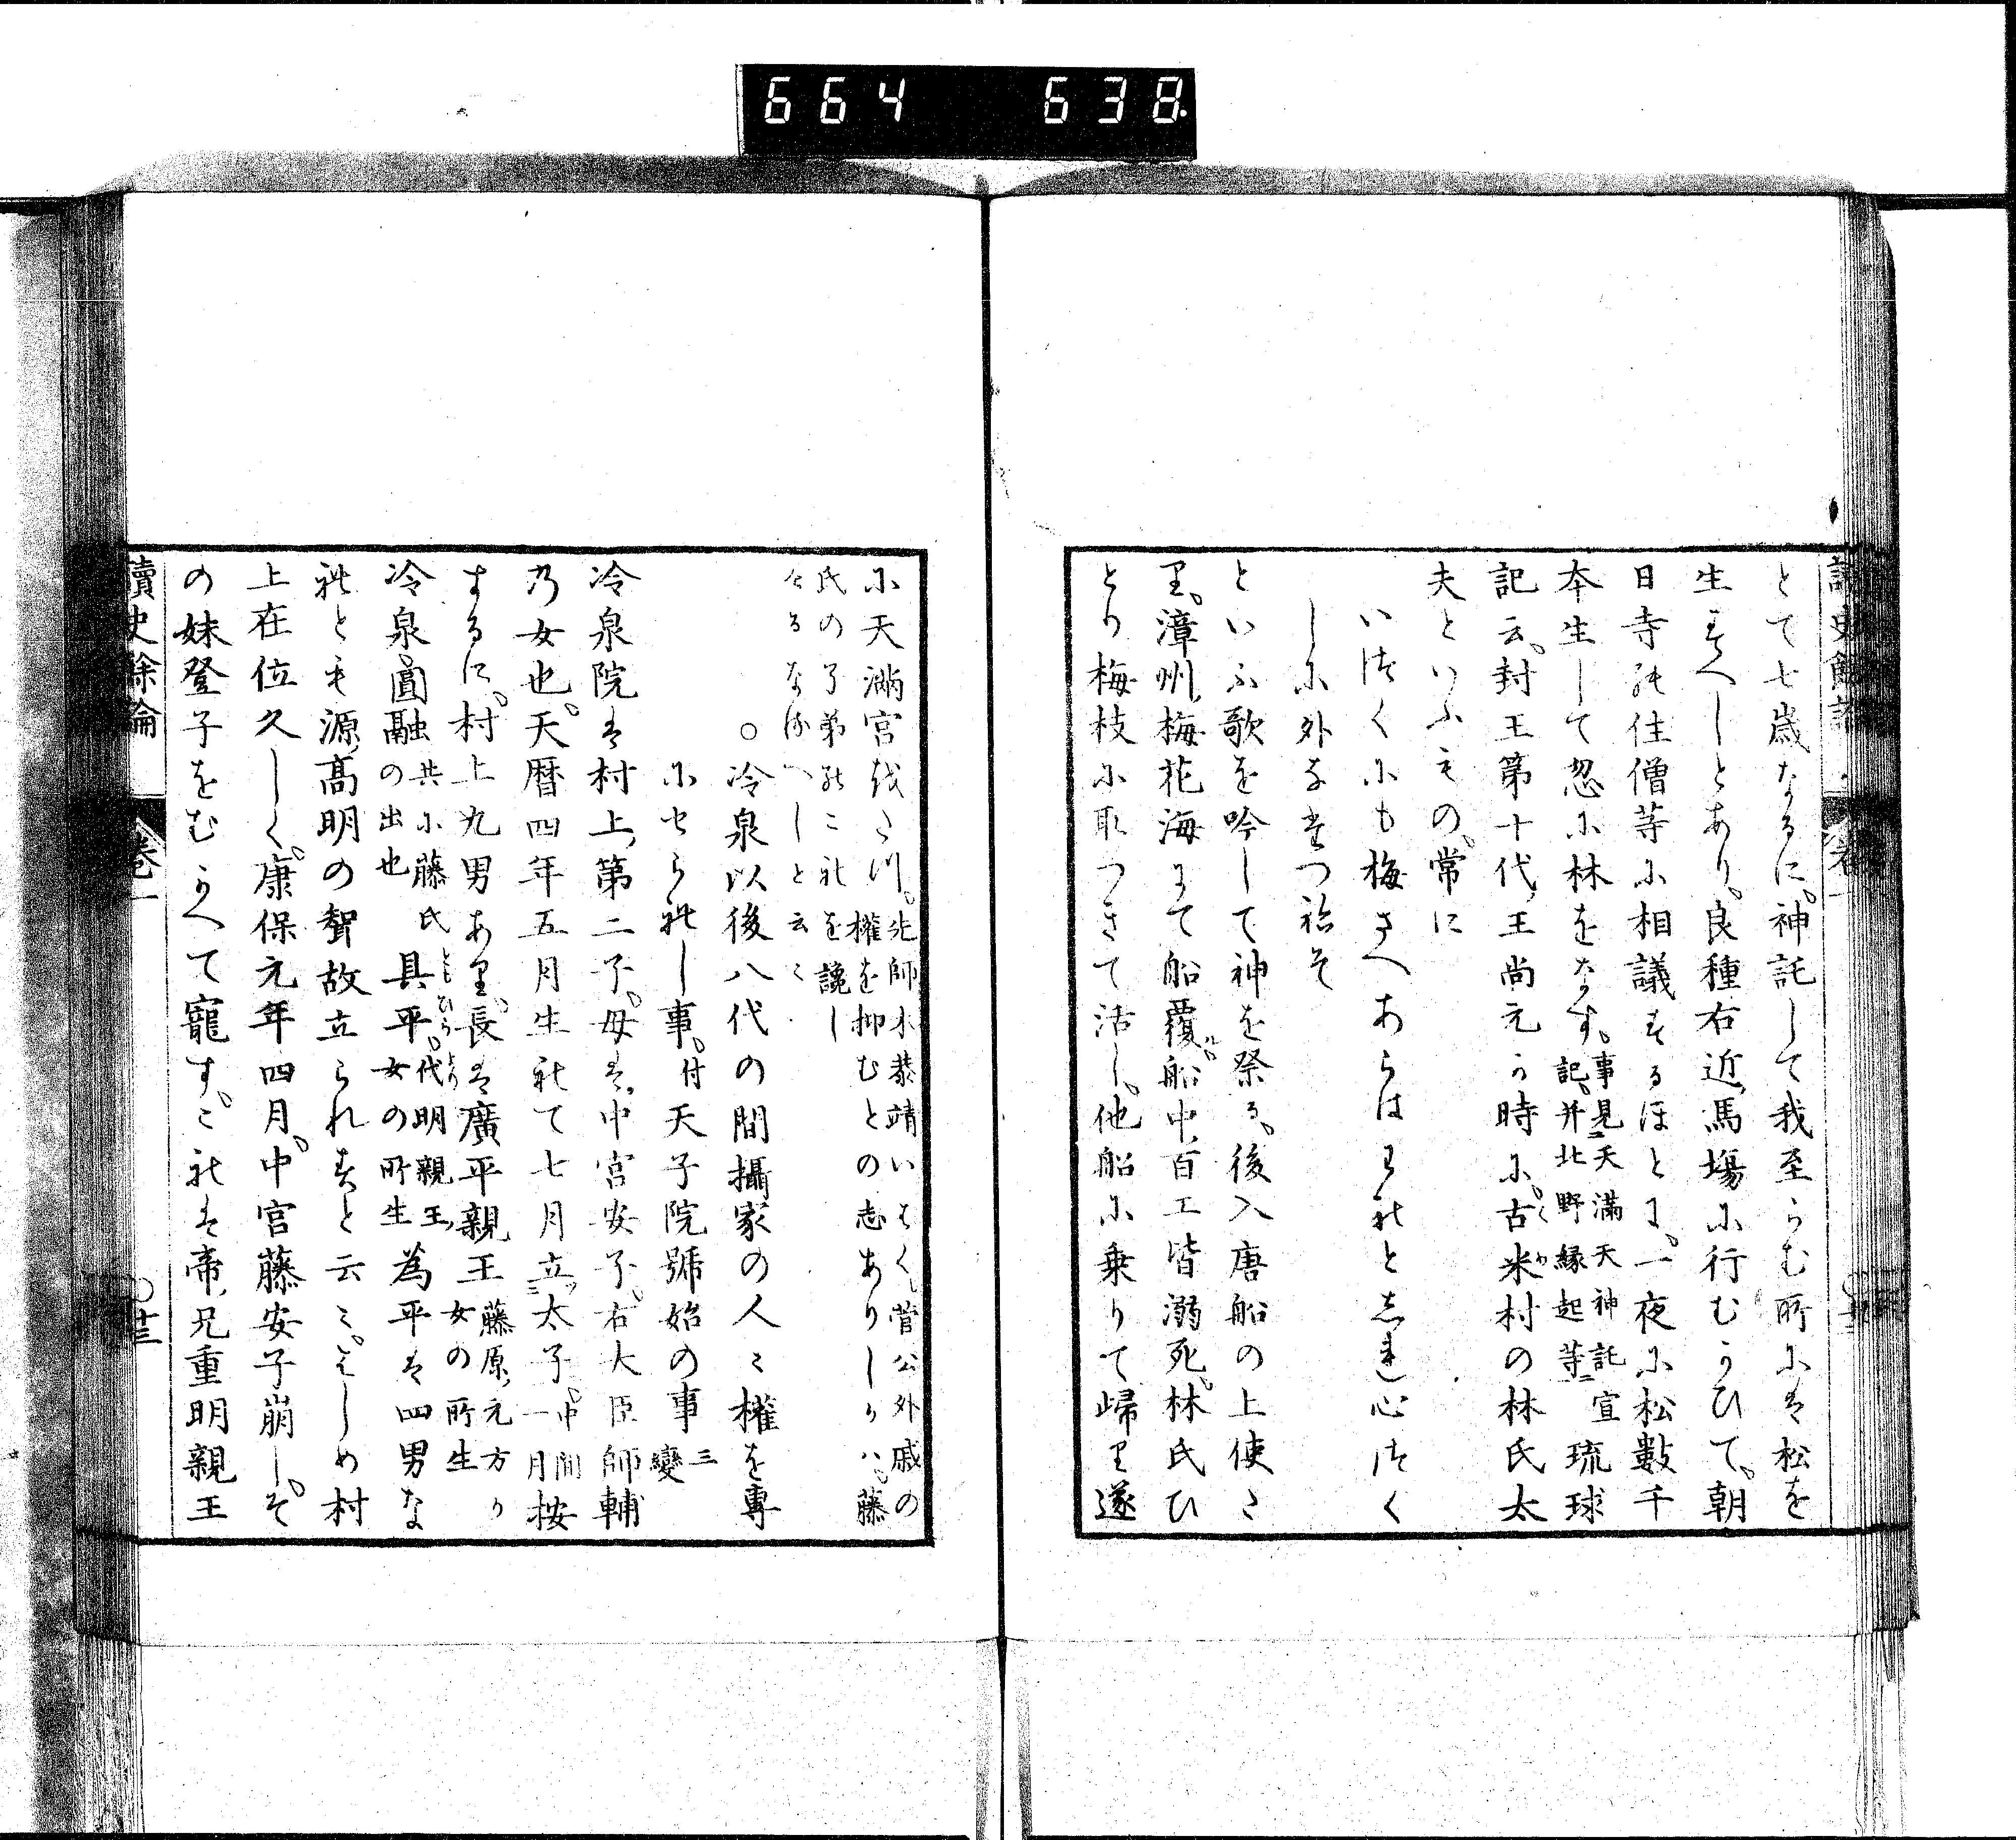 664 638
とて七歳なるに。神託して我至らむ所には松を
生すへしとあり。良種右近馬場に行むかひて。朝
日寺の住僧等に相議するほとに。一夜に松數千
本生して忽に林をなす。事見天滿天神託宣記。并北野縁起等 琉球
記云。封王第十代王尚元か時に。古米村の林氏太
夫といふもの。常に
いつくにも梅さへあらはわれとしれ心つく
しに外なたつねそ
といふ歌を吟して神を祭る。後入唐船の上使と
り。漳州梅花海にて船覆。船中百工皆溺死。林氏ひ
とり梅枝に取つきて活し。他船に乗りて歸り遂
に天滿宮をたつ。先師木恭靖いはく菅公外戚の權を抑むとの志ありしかハ。藤
氏の子弟のこれを讒し
けるなるへしと云々
○冷泉以後八代の間攝家の人々權を專
にせられし事。付天子院號始の事 三變
冷泉院は村上第二子。母は中宮安子。右大臣師輔
乃女也。天暦四年五月生れて七月立太子。中間一月 按
するに。村上九男あり。長は廣平親王 藤原元方か女の所生
冷泉圓融 共に藤氏の出也 具平 ともひら 代明親王女の所生 為平は四男な
れとも源高明の聟故立られすと云々。はしめ村
上在位久しく。康保元年四月。中宮藤安子崩し。そ
の妹登子をむかへて寵す。これは帝兄重明親王
讀史餘論 卷一 廿三